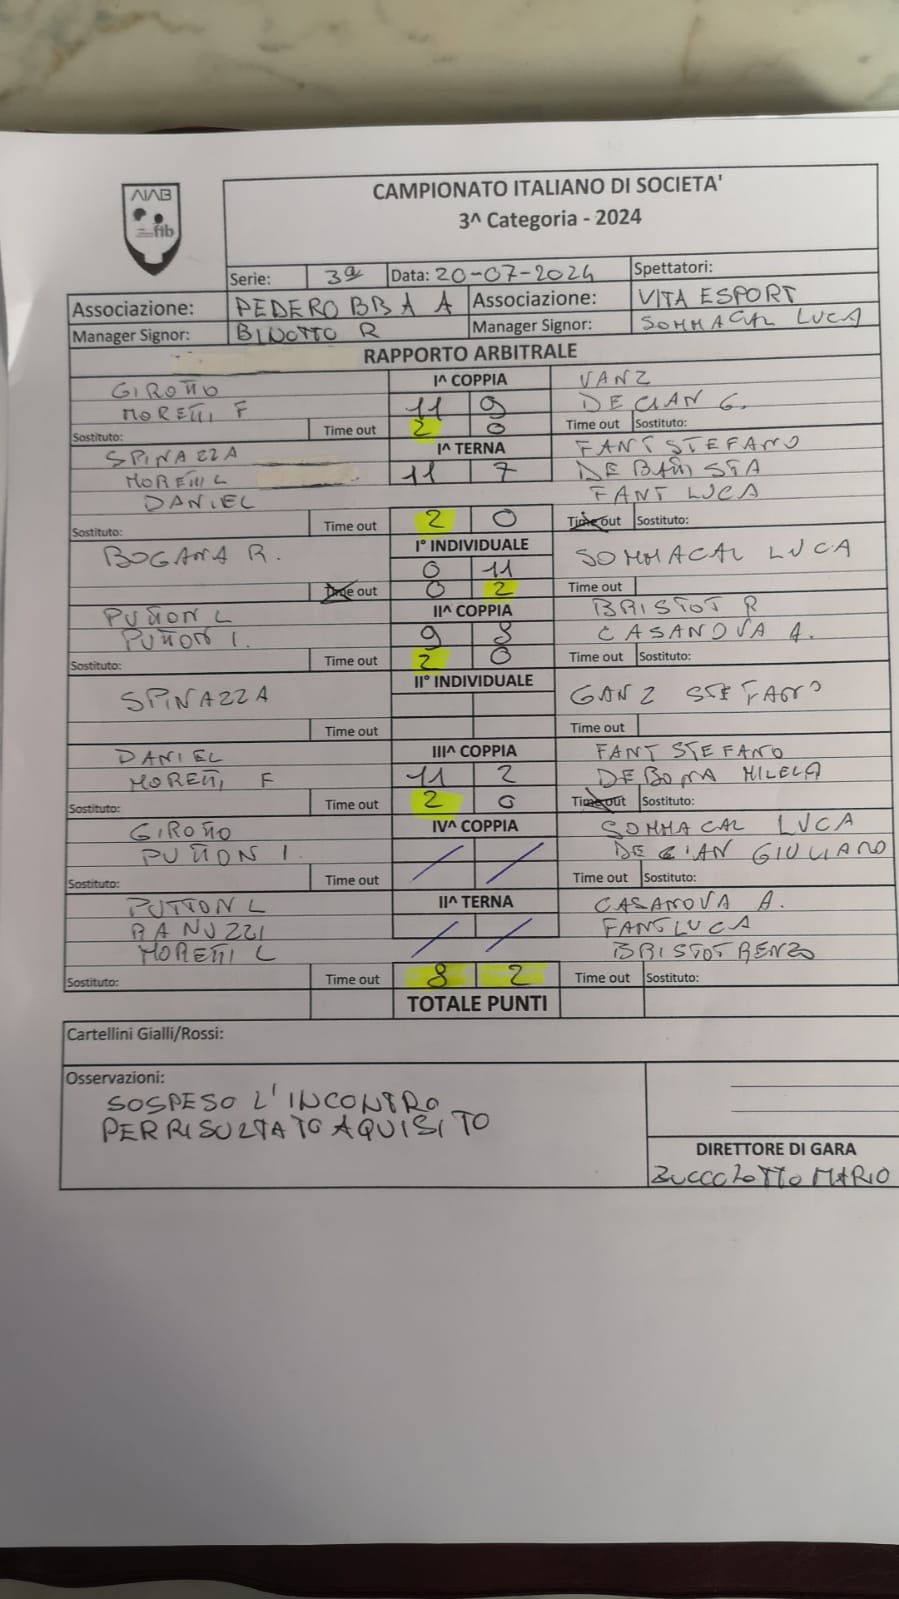 AIAB
fib
CAMPIONATO ITALIANO DI SOCIETA'
3^ Categoria - 2024
Serie: 3ª Data: 20-07-2024 Spettatori:
Associazione: PEDEROBBA A Associazione: VITA ESPORT
Manager Signor: BINOTTO R Manager Signor: SOMMACAL LUCA
RAPPORTO ARBITRALE
GIROTTO I^ COPPIA VANZ
MORETTI F 11 9 DE CIAN G.
Sostituto: Time out 2 0 Time out Sostituto:
SPINAZZA I^ TERNA FANT STEFANO
MORETTI L 11 7 DE BATTISTA
DANIEL FANT LUCA
Sostituto: Time out 2 0 Time out Sostituto:
BOGANA R. I° INDIVIDUALE SOMMACAL LUCA
0 11
Time out 0 2 Time out
PUTTON L II^ COPPIA BRISTOT R
PUTTON I. 9 8 CASANOVA A.
Sostituto: Time out 2 0 Time out Sostituto:
SPINAZZA II° INDIVIDUALE GANZ STEFANO
Time out Time out
DANIEL III^ COPPIA FANT STEFANO
MORETTI F 11 2 DEBONA MILELA
Sostituto: Time out 2 0 Time out Sostituto:
GIROTTO IV^ COPPIA SOMMACAL LUCA
PUTTON I. DE CIAN GIULIANO
Sostituto: Time out Time out Sostituto:
PUTTON L II^ TERNA CASANOVA A.
RANUZZI FANT LUCA
MORETTI L BRISTOT RENZO
Sostituto: Time out 8 2 Time out Sostituto:
TOTALE PUNTI
Cartellini Gialli/Rossi:
Osservazioni:
SOSPESO L'INCONTRO
PER RISULTATO AQUISITO
DIRETTORE DI GARA
ZUCCOLOTTO MARIO